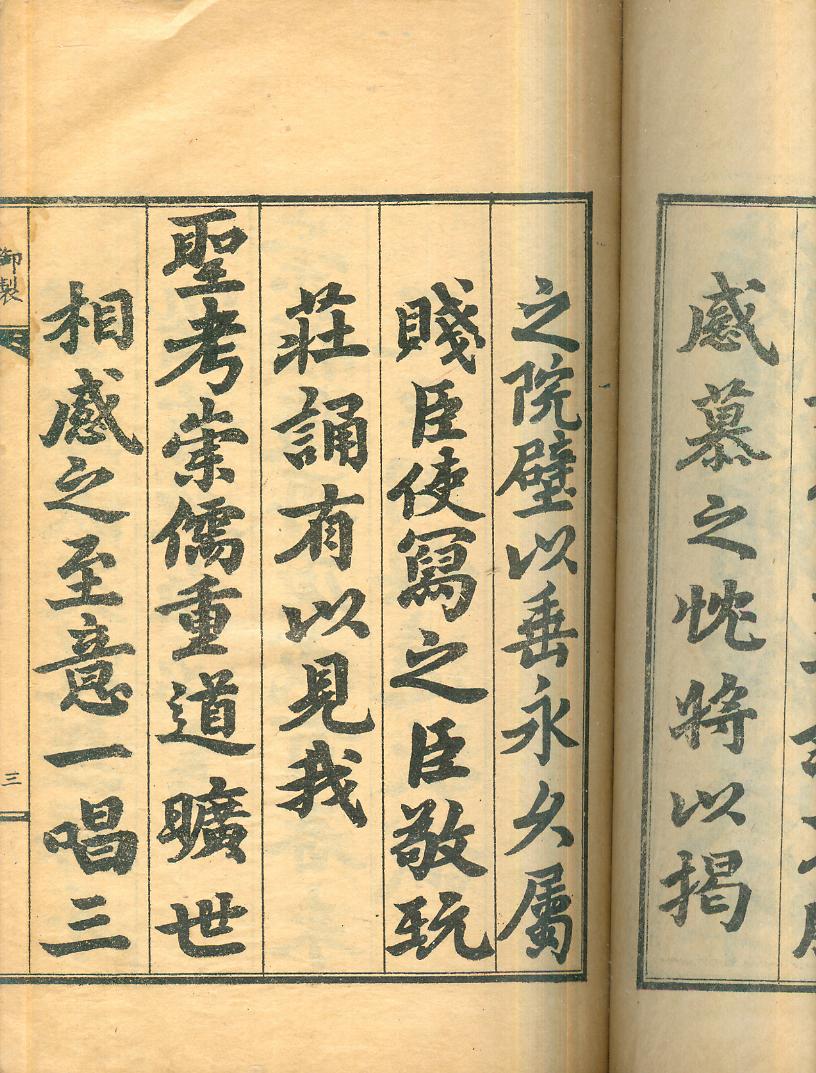 感慕之忱將以揭
之院壁以垂永久屬
賤臣使寫之臣敬玩
莊誦有以見我
聖考崇儒重道曠世
相感之至意一唱三
御製
三